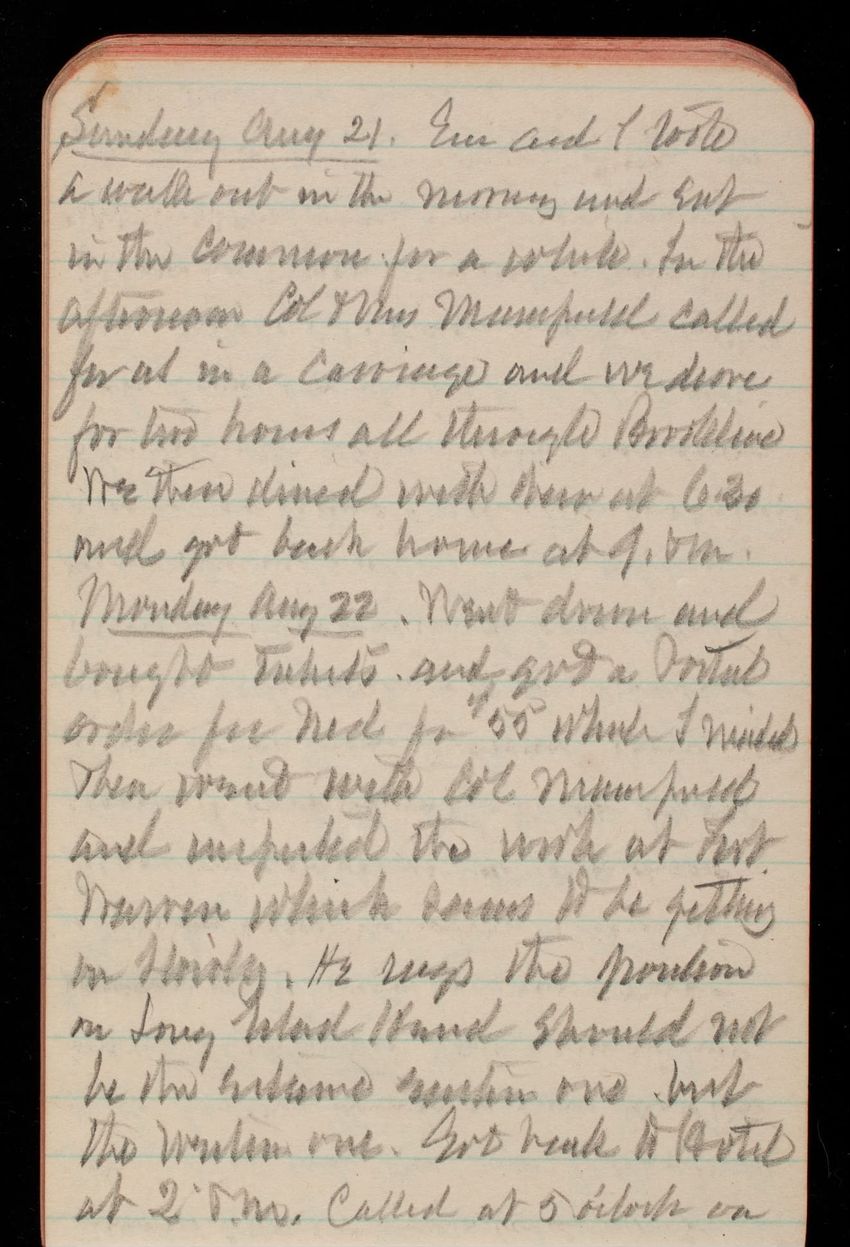 Sunday Aug 21. Em and I took
a walk out in the morning and sat
in the Common for a while. In the
afternoon Col & Mrs Mansfield called
for us in a carriage and we drove
for two hours all through Brookline
We then dined with them at 6 30
and got back home at 9. P.M.
Monday Aug 22. Went down and
bought tickets. and got a Postal
order for Ned for $55 which I mailed
Then went with Col Mansfield
and inspected the work at Fort
Warren which seems to be getting
on slowly. He says the position
on Long Island Stand should not
be the extreme eastern one but
the western one. Got back to Hotel
at 2 P.M. Called at 5 o'clock on